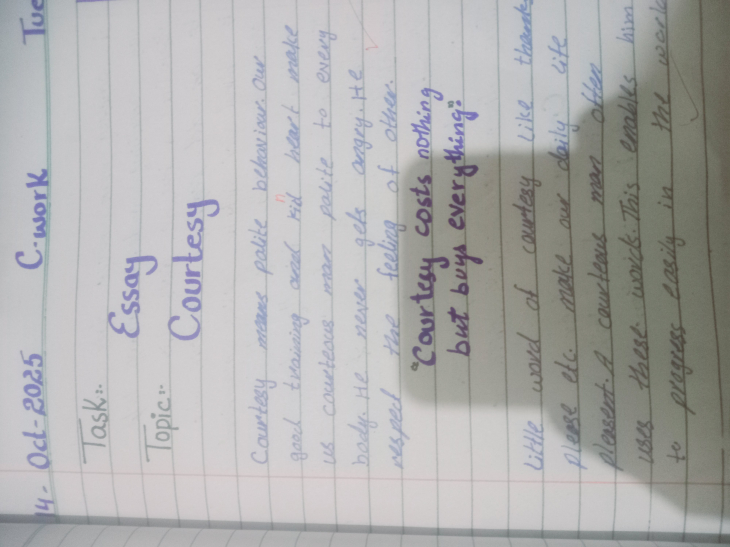 14-Oct-2025 C.work Tue
Task:-
Essay
Topic:-
Courtesy
Courtesy means palite behaviour. Our
good training and kind heart make
us courteous man palite to every
bady. He never gets angry. He
respect the feeling of other.
"Courtesy costs nothing
but buys everything."
Little word of courtesy like thanks
please etc. make our daily life
pleasent. A courteous man often
uses these words. This enables him
to progress easily in the world